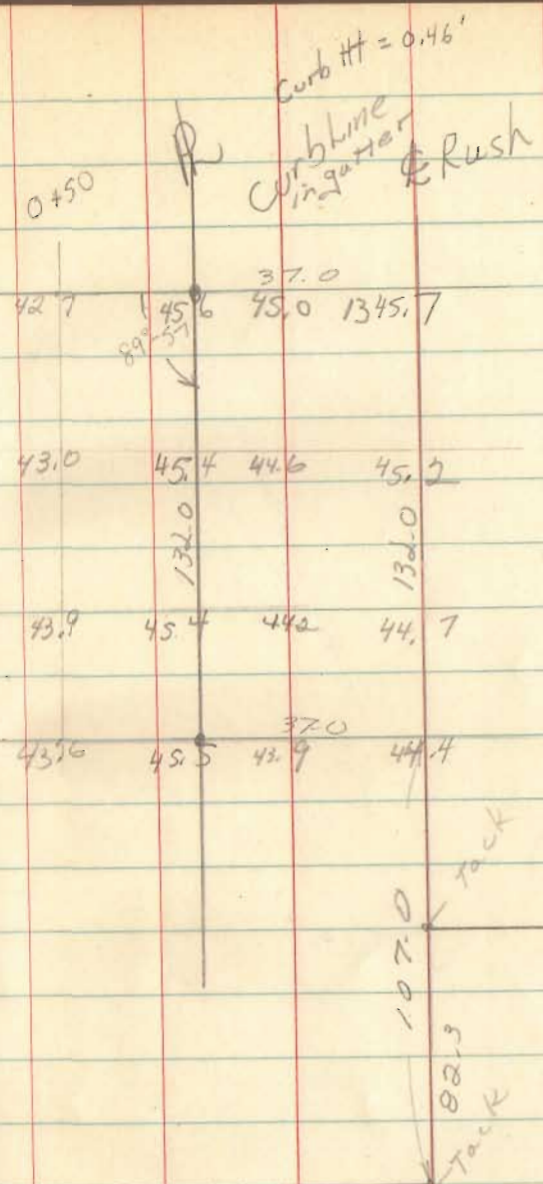 Curb Ht = 0.46'
PL
Curb Line
in gutter
℄ Rush
0+50
37.0
42.7 45.6 45.0 1345.7
89°-57
43.0 45.4 44.6 45.2
132.0 132.0
43.9 45.4 44.2 44.7
37.0
43.6 45.5 43.9 44.4
Tack
107.0
82.3
Tack